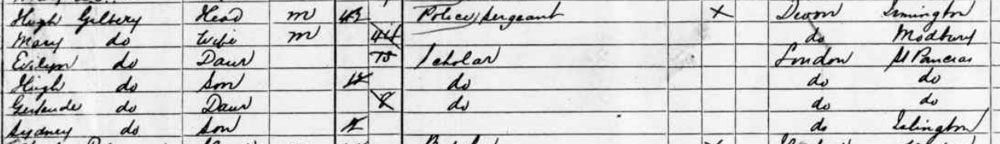 Hugh Gilbery Head m 42 Police Sergeant x Devon Ermington
Mary do Wife m 44 do Modbury
Evilyn do Daur Scholar London St Pancras
Hugh do Son 12 do do do
Gertrude do Daur 8 do do do
Sydney do Son do Islington